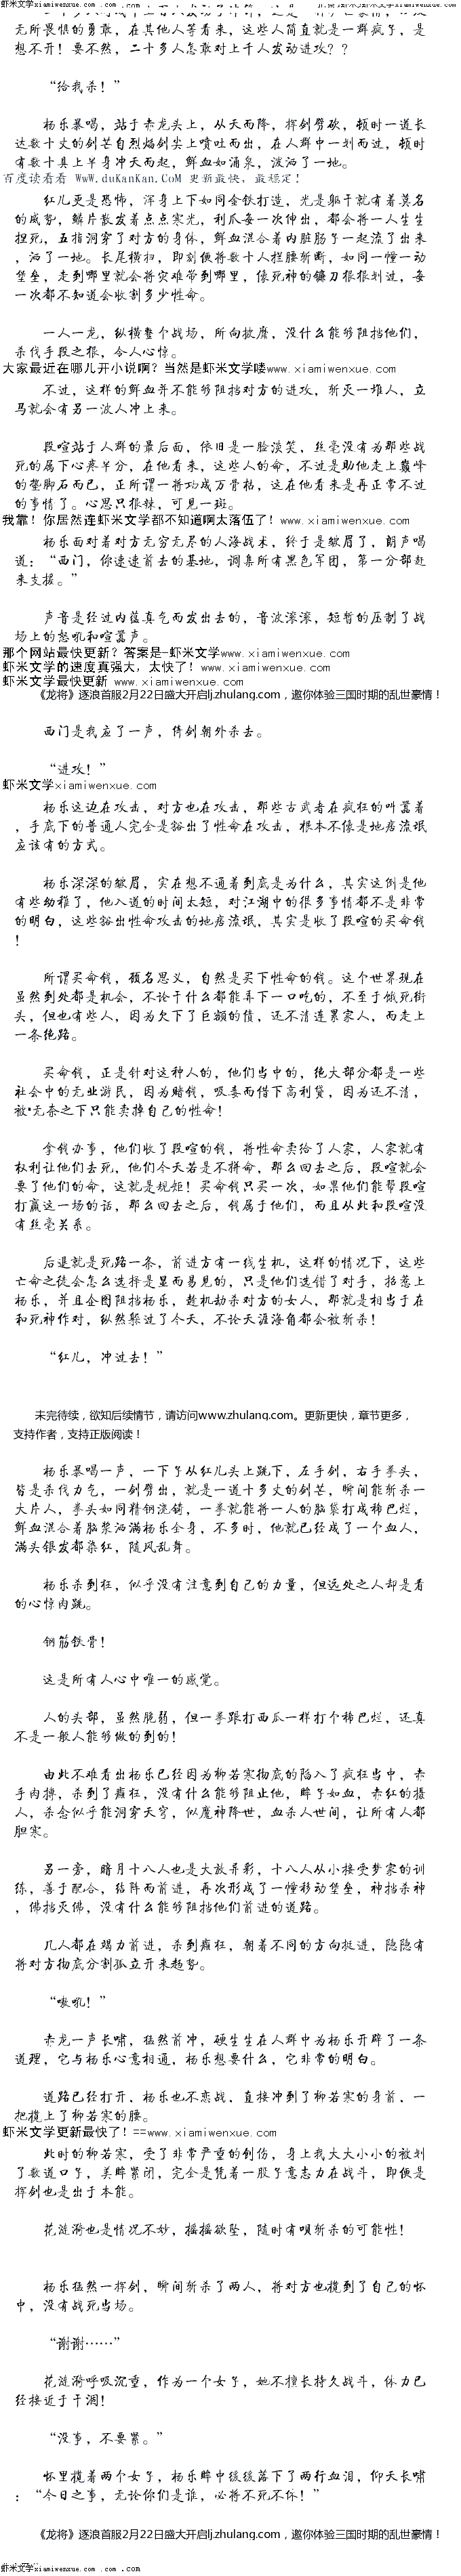 虾米文学xiamiwenxue.com .com .com
无所畏惧的勇敢，在其他人等看来，这些人简直就是一群疯子，是
想不开！要不然，二十多人怎敢对上千人发动进攻？？
“给我杀！”
杨乐暴喝，站于赤龙头上，从天而降，挥剑劈砍，顿时一道长
达数十丈的剑芒自烈焰剑尖上喷吐而出，在人群中一划而过，顿时
有数十具上半身冲天而起，鲜血如涌泉，泼洒了一地。
百度读看看 WwW.duKanKan.CoM 更新最快，最稳定！
红儿更是恐怖，浑身上下如同金铁打造，光是躯干就有着莫名
的威势，鳞片散发着点点寒光，利爪每一次伸出，都会将一人生生
捏死，五指洞穿了对方的身体，鲜血混合着内脏肠子一起流了出来
，洒了一地。长尾横扫，即刻便将数十人拦腰斩断，如同一幢一动
堡垒，走到哪里就会将灾难带到哪里，像死神的镰刀狠狠划过，每
一次都不知道会收割多少性命。
一人一龙，纵横整个战场，所向披靡，没什么能够阻挡他们，
杀伐手段之狠，令人心惊。
大家最近在哪儿开小说啊？当然是虾米文学喽www.xiamiwenxue.com
不过，这样的鲜血并不能够阻挡对方的进攻，斩灭一堆人，立
马就会有另一波人冲上来。
段喧站于人群的最后面，依旧是一脸淡笑，丝毫没有为那些战
死的属下心疼半分，在他看来，这些人的命，不过是助他走上巅峰
的垫脚石而已，正所谓一将功成万骨枯，这在他看来是再正常不过
的事情了。心思只狠辣，可见一斑。
我靠！你居然连虾米文学都不知道啊太落伍了！www.xiamiwenxue.com
杨乐面对着对方无穷无尽的人海战术，终于是皱眉了，朗声喝
道：“西门，你速速前去的基地，调集所有黑色军团，第一分部赶
来支援。”
声音是经过内蕴真气而发出去的，音波滚滚，短暂的压制了战
场上的怒吼和喧嚣声。
那个网站最快更新？答案是-虾米文学www.xiamiwenxue.com
虾米文学的速度真强大，太快了！www.xiamiwenxue.com
虾米文学最快更新 www.xiamiwenxue.com
《龙将》逐浪首服2月22日盛大开启lj.zhulang.com，邀你体验三国时期的乱世豪情！
西门是我应了一声，倚剑朝外杀去。
“进攻！”
虾米文学xiamiwenxue.com
杨乐这边在攻击，对方也在攻击，那些古武者在疯狂的叫嚣着
，手底下的普通人完全是豁出了性命在攻击，根本不像是地痞流氓
应该有的方式。
杨乐深深的皱眉，实在想不通着到底是为什么，其实这倒是他
有些幼稚了，他入道的时间太短，对江湖中的很多事情都不是非常
的明白，这些豁出性命攻击的地痞流氓，其实是收了段喧的买命钱
！
所谓买命钱，顾名思义，自然是买下性命的钱。这个世界现在
虽然到处都是机会，不论干什么都能弄下一口吃的，不至于饿死街
头，但也有些人，因为欠下了巨额的债，还不清连累家人，而走上
一条绝路。
买命钱，正是针对这种人的，他们当中的，绝大部分都是一些
社会中的无业游民，因为赌钱，吸毒而借下高利贷，因为还不清，
被*无奈之下只能卖掉自己的性命！
拿钱办事，他们收了段喧的钱，将性命卖给了人家，人家就有
权利让他们去死，他们今天若是不拼命，那么回去之后，段喧就会
要了他们的命，这就是规矩！买命钱只买一次，如果他们能帮段喧
打赢这一场的话，那么回去之后，钱属于他们，而且从此和段喧没
有丝毫关系。
后退就是死路一条，前进方有一线生机，这样的情况下，这些
亡命之徒会怎么选择是显而易见的，只是他们选错了对手，招惹上
杨乐，并且企图阻挡杨乐，趁机劫杀对方的女人，那就是相当于在
和死神作对，纵然躲过了今天，不论天涯海角都会被斩杀！
“红儿，冲过去！”
未完待续，欲知后续情节，请访问www.zhulang.com。更新更快，章节更多，
支持作者，支持正版阅读！
杨乐暴喝一声，一下子从红儿头上跳下，左手剑，右手拳头，
皆是杀伐力气，一剑劈出，就是一道十多丈的剑芒，瞬间能斩杀一
大片人，拳头如同精钢浇铸，一拳就能将一人的脑袋打成稀巴烂，
鲜血混合着脑浆洒满杨乐全身，不多时，他就已经成了一个血人，
满头银发都染红，随风乱舞。
杨乐杀到狂，似乎没有注意到自己的力量，但远处之人却是看
的心惊肉跳。
钢筋铁骨！
这是所有人心中唯一的感觉。
人的头部，虽然脆弱，但一拳跟打西瓜一样打个稀巴烂，还真
不是一般人能够做的到的！
由此不难看出杨乐已经因为柳若寒彻底的陷入了疯狂当中，赤
手肉搏，杀到了癫狂，没有什么能够阻止他，眸子如血，赤红的摄
人，杀念似乎能洞穿天穹，似魔神降世，血杀人世间，让所有人都
胆寒。
另一旁，暗月十八人也是大放异彩，十八人从小接受梦家的训
练，善于配合，结阵而前进，再次形成了一幢移动堡垒，神挡杀神
，佛挡灭佛，没有什么能够阻挡他们前进的道路。
几人都在竭力前进，杀到癫狂，朝着不同的方向挺进，隐隐有
将对方彻底分割孤立开来趋势。
“嗷吼！”
赤龙一声长啸，猛然前冲，硬生生在人群中为杨乐开辟了一条
道理，它与杨乐心意相通，杨乐想要什么，它非常的明白。
道路已经打开，杨乐也不恋战，直接冲到了柳若寒的身前，一
把揽上了柳若寒的腰。
虾米文学更新最快了！==www.xiamiwenxue.com
此时的柳若寒，受了非常严重的创伤，身上我大大小小的被划
了数道口子，美眸紧闭，完全是凭着一股子意志力在战斗，即便是
挥剑也是出于本能。
花涟漪也是情况不妙，摇摇欲坠，随时有呗斩杀的可能性！
杨乐猛然一挥剑，瞬间斩杀了两人，将对方也揽到了自己的怀
中，没有战死当场。
“谢谢……”
花涟漪呼吸沉重，作为一个女子，她不擅长持久战斗，体力已
经接近于干涸！
“没事，不要紧。”
怀里揽着两个女子，杨乐眸中缓缓落下了两行血泪，仰天长啸
：“今日之事，无论你们是谁，必将不死不休！”
《龙将》逐浪首服2月22日盛大开启lj.zhulang.com，邀你体验三国时期的乱世豪情！
虾米文学xiamiwenxue.com .com .com